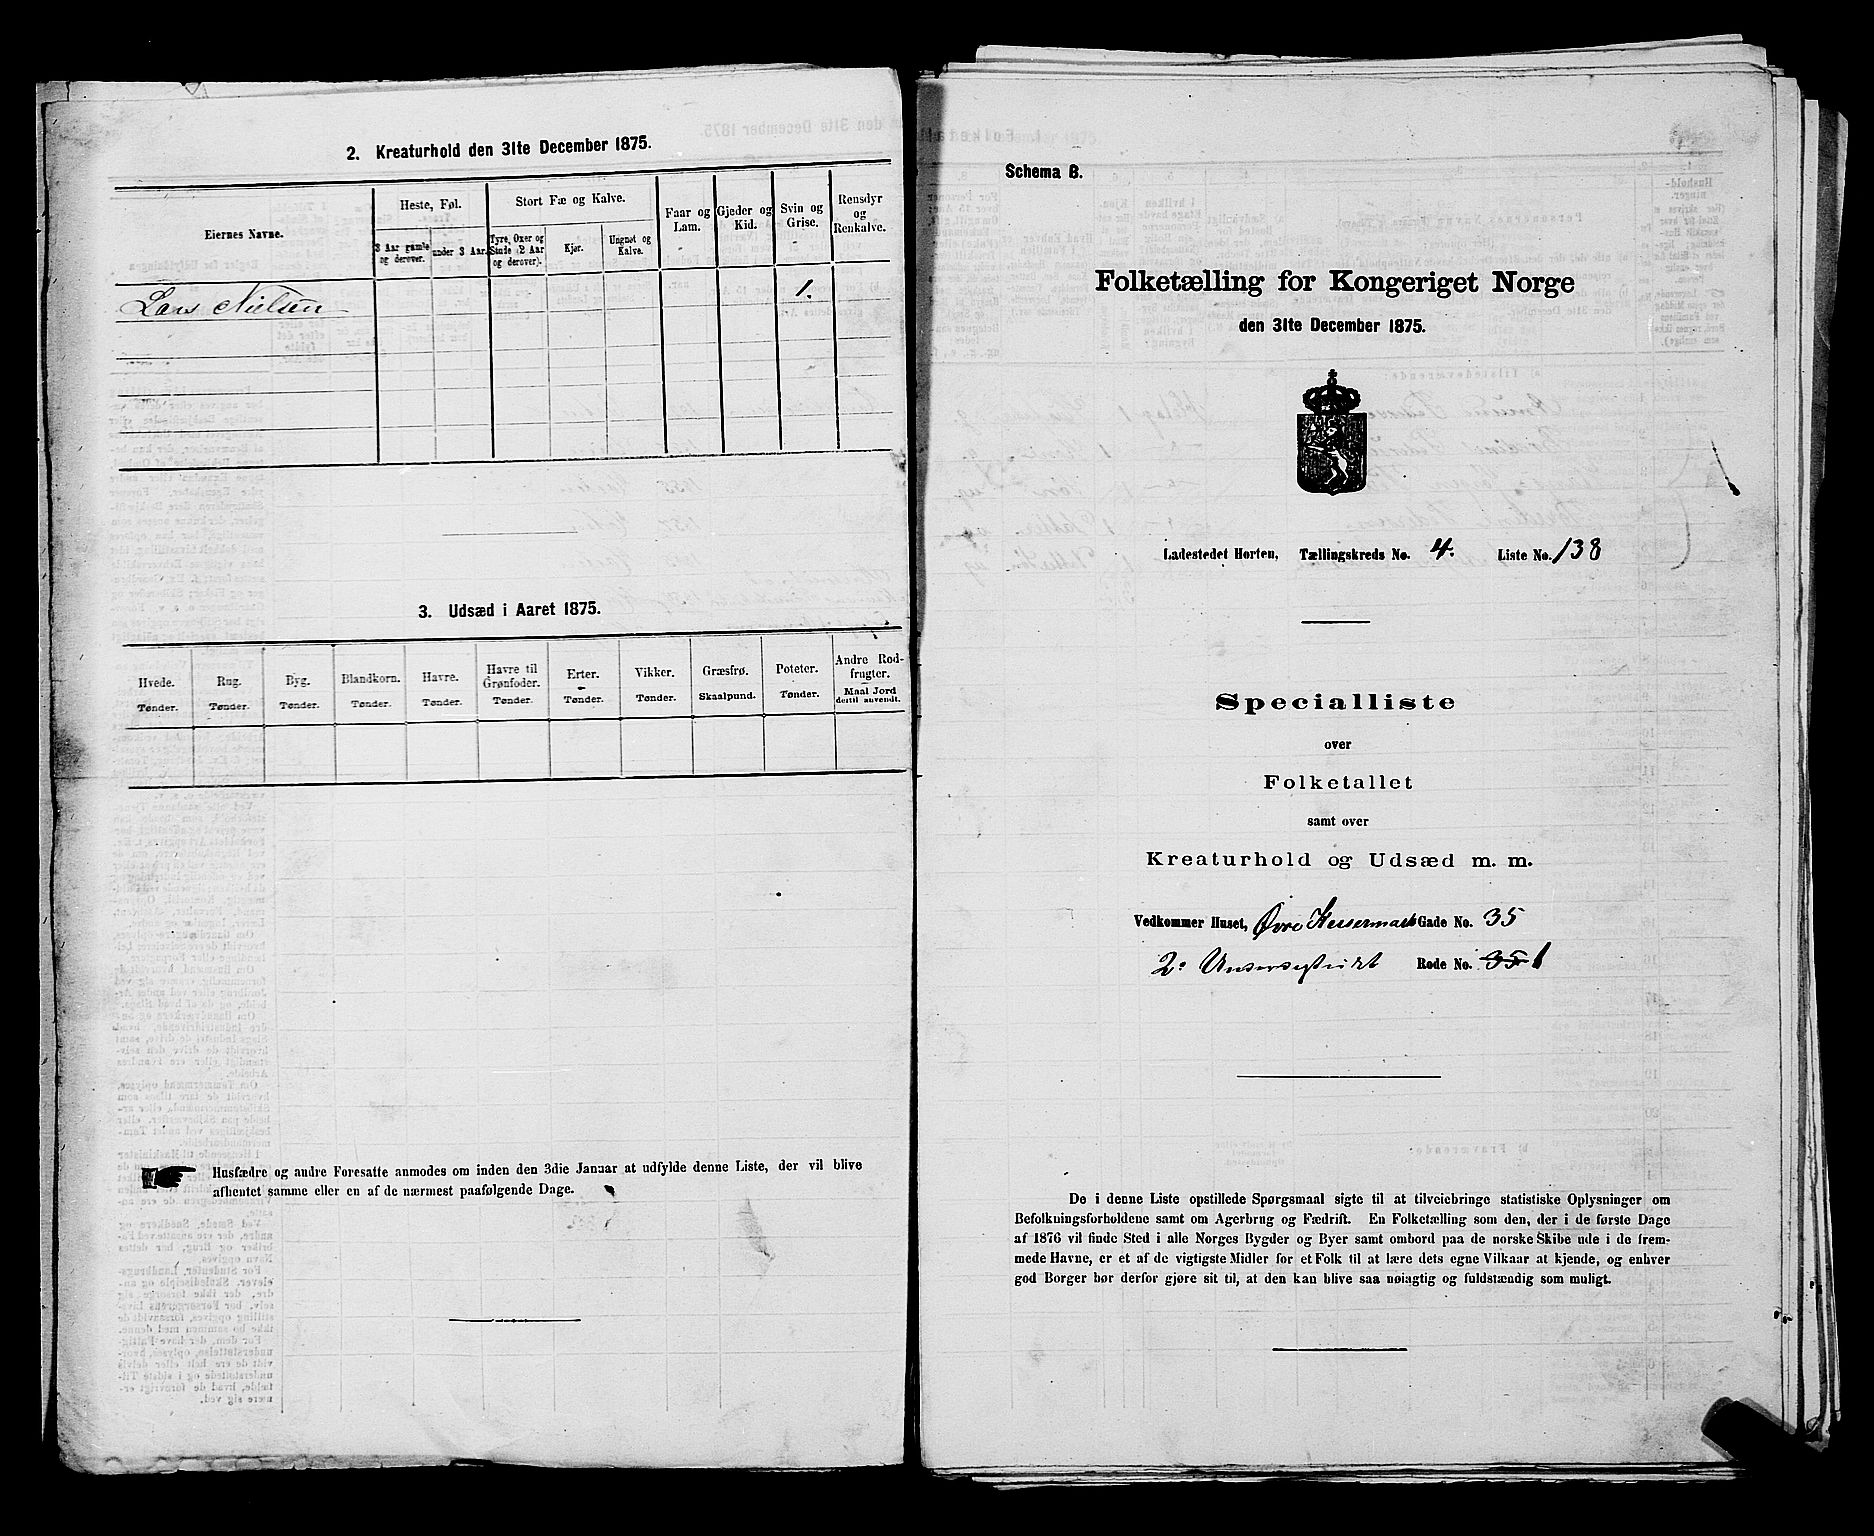 2. Kreaturhold den 31te December 1875.
Eiernes Navne.
Heste, Føl.
Stort Fæ og Kalve.
Faar og Lam.
Gjeder og Kid.
Svin og Grise.
Rensdyr og Renkalve.
3 Aar gamle og derover.
under 3 Aar.
Tyre, Oxer og Stude (2 Aar og derover).
Kjør.
Ungnøt og Kalve.
Lars Nielsen 1.
3. Udsæd i Aaret 1875.
Hvede. Rug. Byg. Blandkorn. Havre. Havre til Grønfoder. Erter. Vikker. Græsfrø. Poteter. Andre Rodfrugter.
Tønder. Tønder. Tønder. Tønder. Tønder. Tønder. Tønder. Tønder. Skaalpund. Tønder. Maal Jord dertil anvendt.
Husfædre og andre Foresatte anmodes om inden den 3die Januar at udfylde denne Liste, der vil blive
afhentet samme eller en af de nærmest paafølgende Dage.
Schema B.
Folketælling for Kongeriget Norge
den 31te December 1875.
Ladestedet Horten, Tællingskreds No. 4. Liste No. 138
Specialliste
over
Folketallet
samt over
Kreaturhold og Udsæd m. m.
Vedkommer Huset, Øvre Gade No. 35
2. Rode No. 35 1
De i denne Liste opstillede Spørgsmaal sigte til at tilveiebringe statistiske Oplysninger om
Befolkningsforholdene samt om Agerbrug og Fædrift. En Folketælling som den, der i de første Dage
af 1876 vil finde Sted i alle Norges Bygder og Byer samt ombord paa de norske Skibe ude i de frem-
mede Havne, er et af de vigtigste Midler for et Folk til at lære dets egne Vilkaar at kjende, og enhver
god Borger bør derfor gjøre sit til, at den kan blive saa nøiagtig og fuldstændig som muligt.